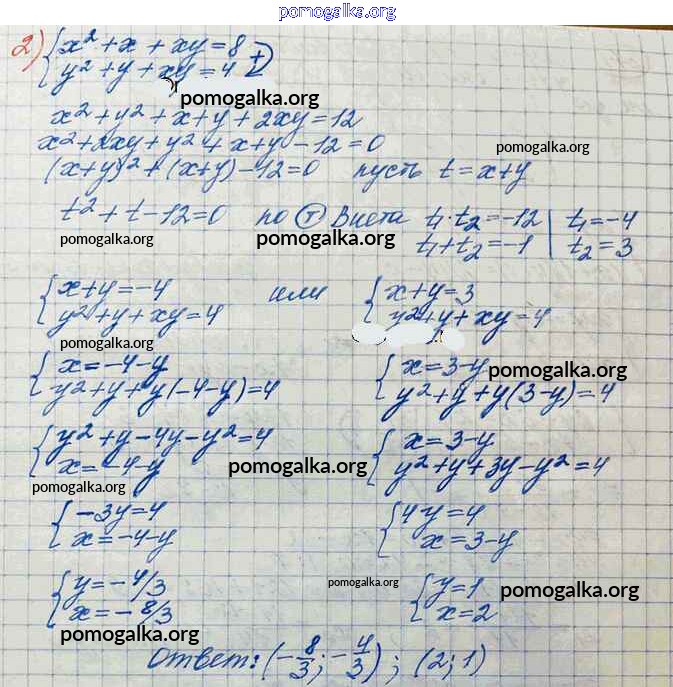 pomogalka.org
2) { x² + x + xy = 8
{ y² + y + xy = 4 +
pomogalka.org
x² + y² + x + y + 2xy = 12
x² + 2xy + y² + x + y - 12 = 0
pomogalka.org
(x+y)² + (x+y) - 12 = 0 пусть t = x+y
t² + t - 12 = 0 по (т) Виета t₁·t₂ = -12 | t₁ = -4
t₁+t₂ = -1 | t₂ = 3
pomogalka.org pomogalka.org
{ x+y = -4 или { x+y = 3
{ y² + y + xy = 4 { y² + y + xy = 4
pomogalka.org
{ x = -4-y { x = 3-y pomogalka.org
{ y² + y + y(-4-y) = 4 { y² + y + y(3-y) = 4
{ y² + y - 4y - y² = 4 { x = 3-y
{ x = -4-y pomogalka.org { y² + y + 3y - y² = 4
pomogalka.org
{ -3y = 4 { 4y = 4
{ x = -4-y { x = 3-y
{ y = -4/3 pomogalka.org { y = 1 pomogalka.org
{ x = -8/3 { x = 2
pomogalka.org
Ответ: (-8/3; -4/3); (2; 1)